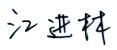 江进林